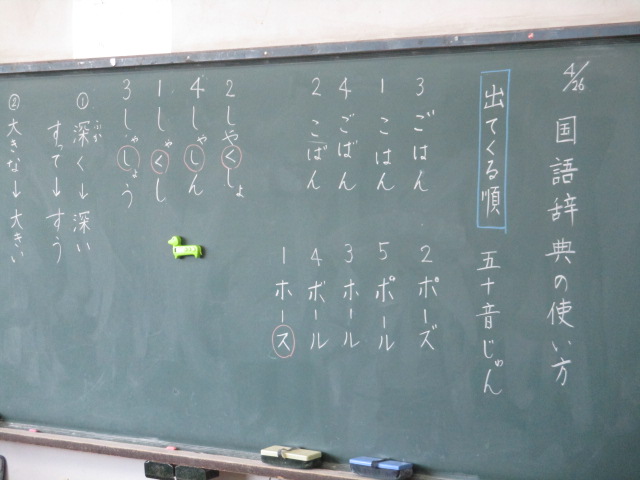 4/26 国語辞典の使い方
出てくる順 五十音じゅん
3 ごはん
1 こはん
4 ごばん
2 こばん
2 ポーズ
5 ポール
3 ホール
4 ボール
1 ホース
2 しやくしょ
4 しゃしん
1 しゃくし
3 しゃしょう
① 深く→深い
ふか
すって→すう
② 大きな→大きい